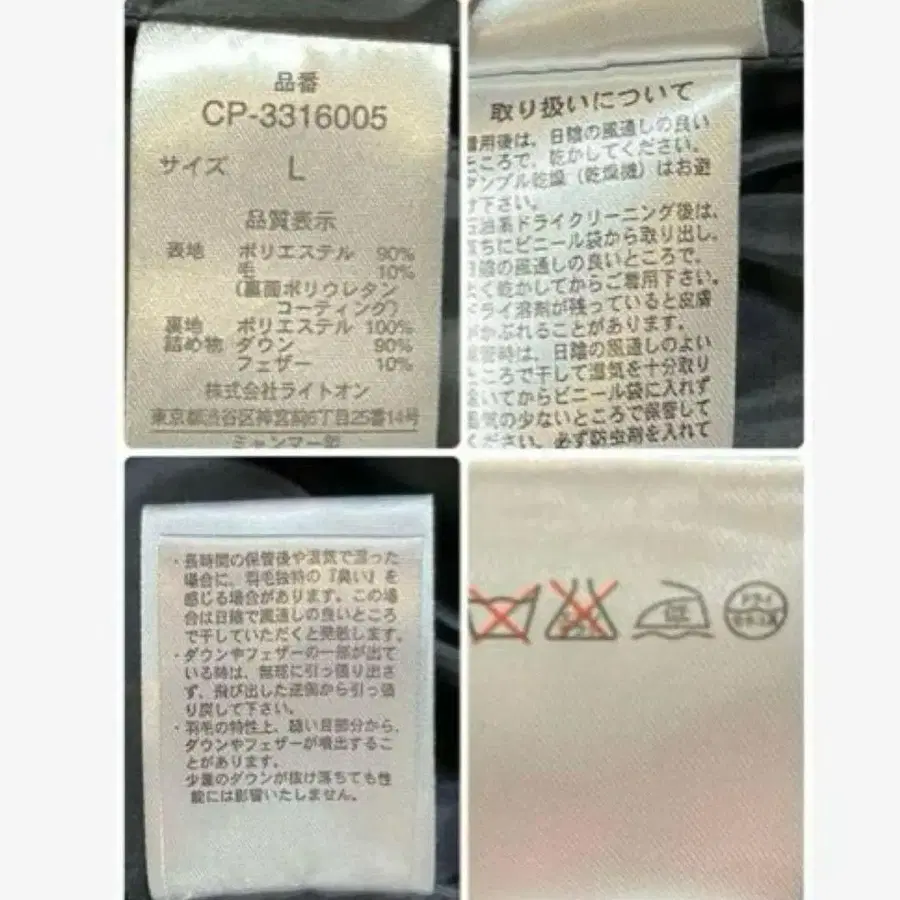 品番
CP-3316005
サイズ L
品質表示
表地 ポリエステル 90%
毛 10%
(裏面ポリウレタン
コーティング)
裏地 ポリエステル 100%
詰め物 ダウン 90%
フェザー 10%
株式会社ライトオン
東京都渋谷区神宮前6丁目25番14号
ミャンマー製
取り扱いについて
着用後は、日陰の風通しの良い
ところで、乾かしてください。
タンブル乾燥(乾燥機)はお避
け下さい。
石油系ドライクリーニング後は、
直ちにビニール袋から取り出し、
日陰の風通しの良いところで、
よく乾かしてからご着用下さい。
ドライ溶剤が残っていると皮膚
がかぶれることがあります。
保管時は、日陰の風通しのよい
ところで干して湿気を十分取り
除いてからビニール袋に入れず
湿気の少ないところで保管して
ください。必ず防虫剤を入れて
・長時間の保管後や湿気で湿った
場合に、羽毛独特の『臭い』を
感じる場合があります。この場
合は日陰で風通しの良いところ
で干していただくと発散します。
・ダウンやフェザーの一部が出て
いる時は、無理に引っ張り出さ
ず、飛び出した逆側から引っ張
り戻して下さい。
・羽毛の特性上、縫い目部分から、
ダウンやフェザーが噴出するこ
とがあります。
少量のダウンが抜け落ちても性
能には影響いたしません。
ドライ